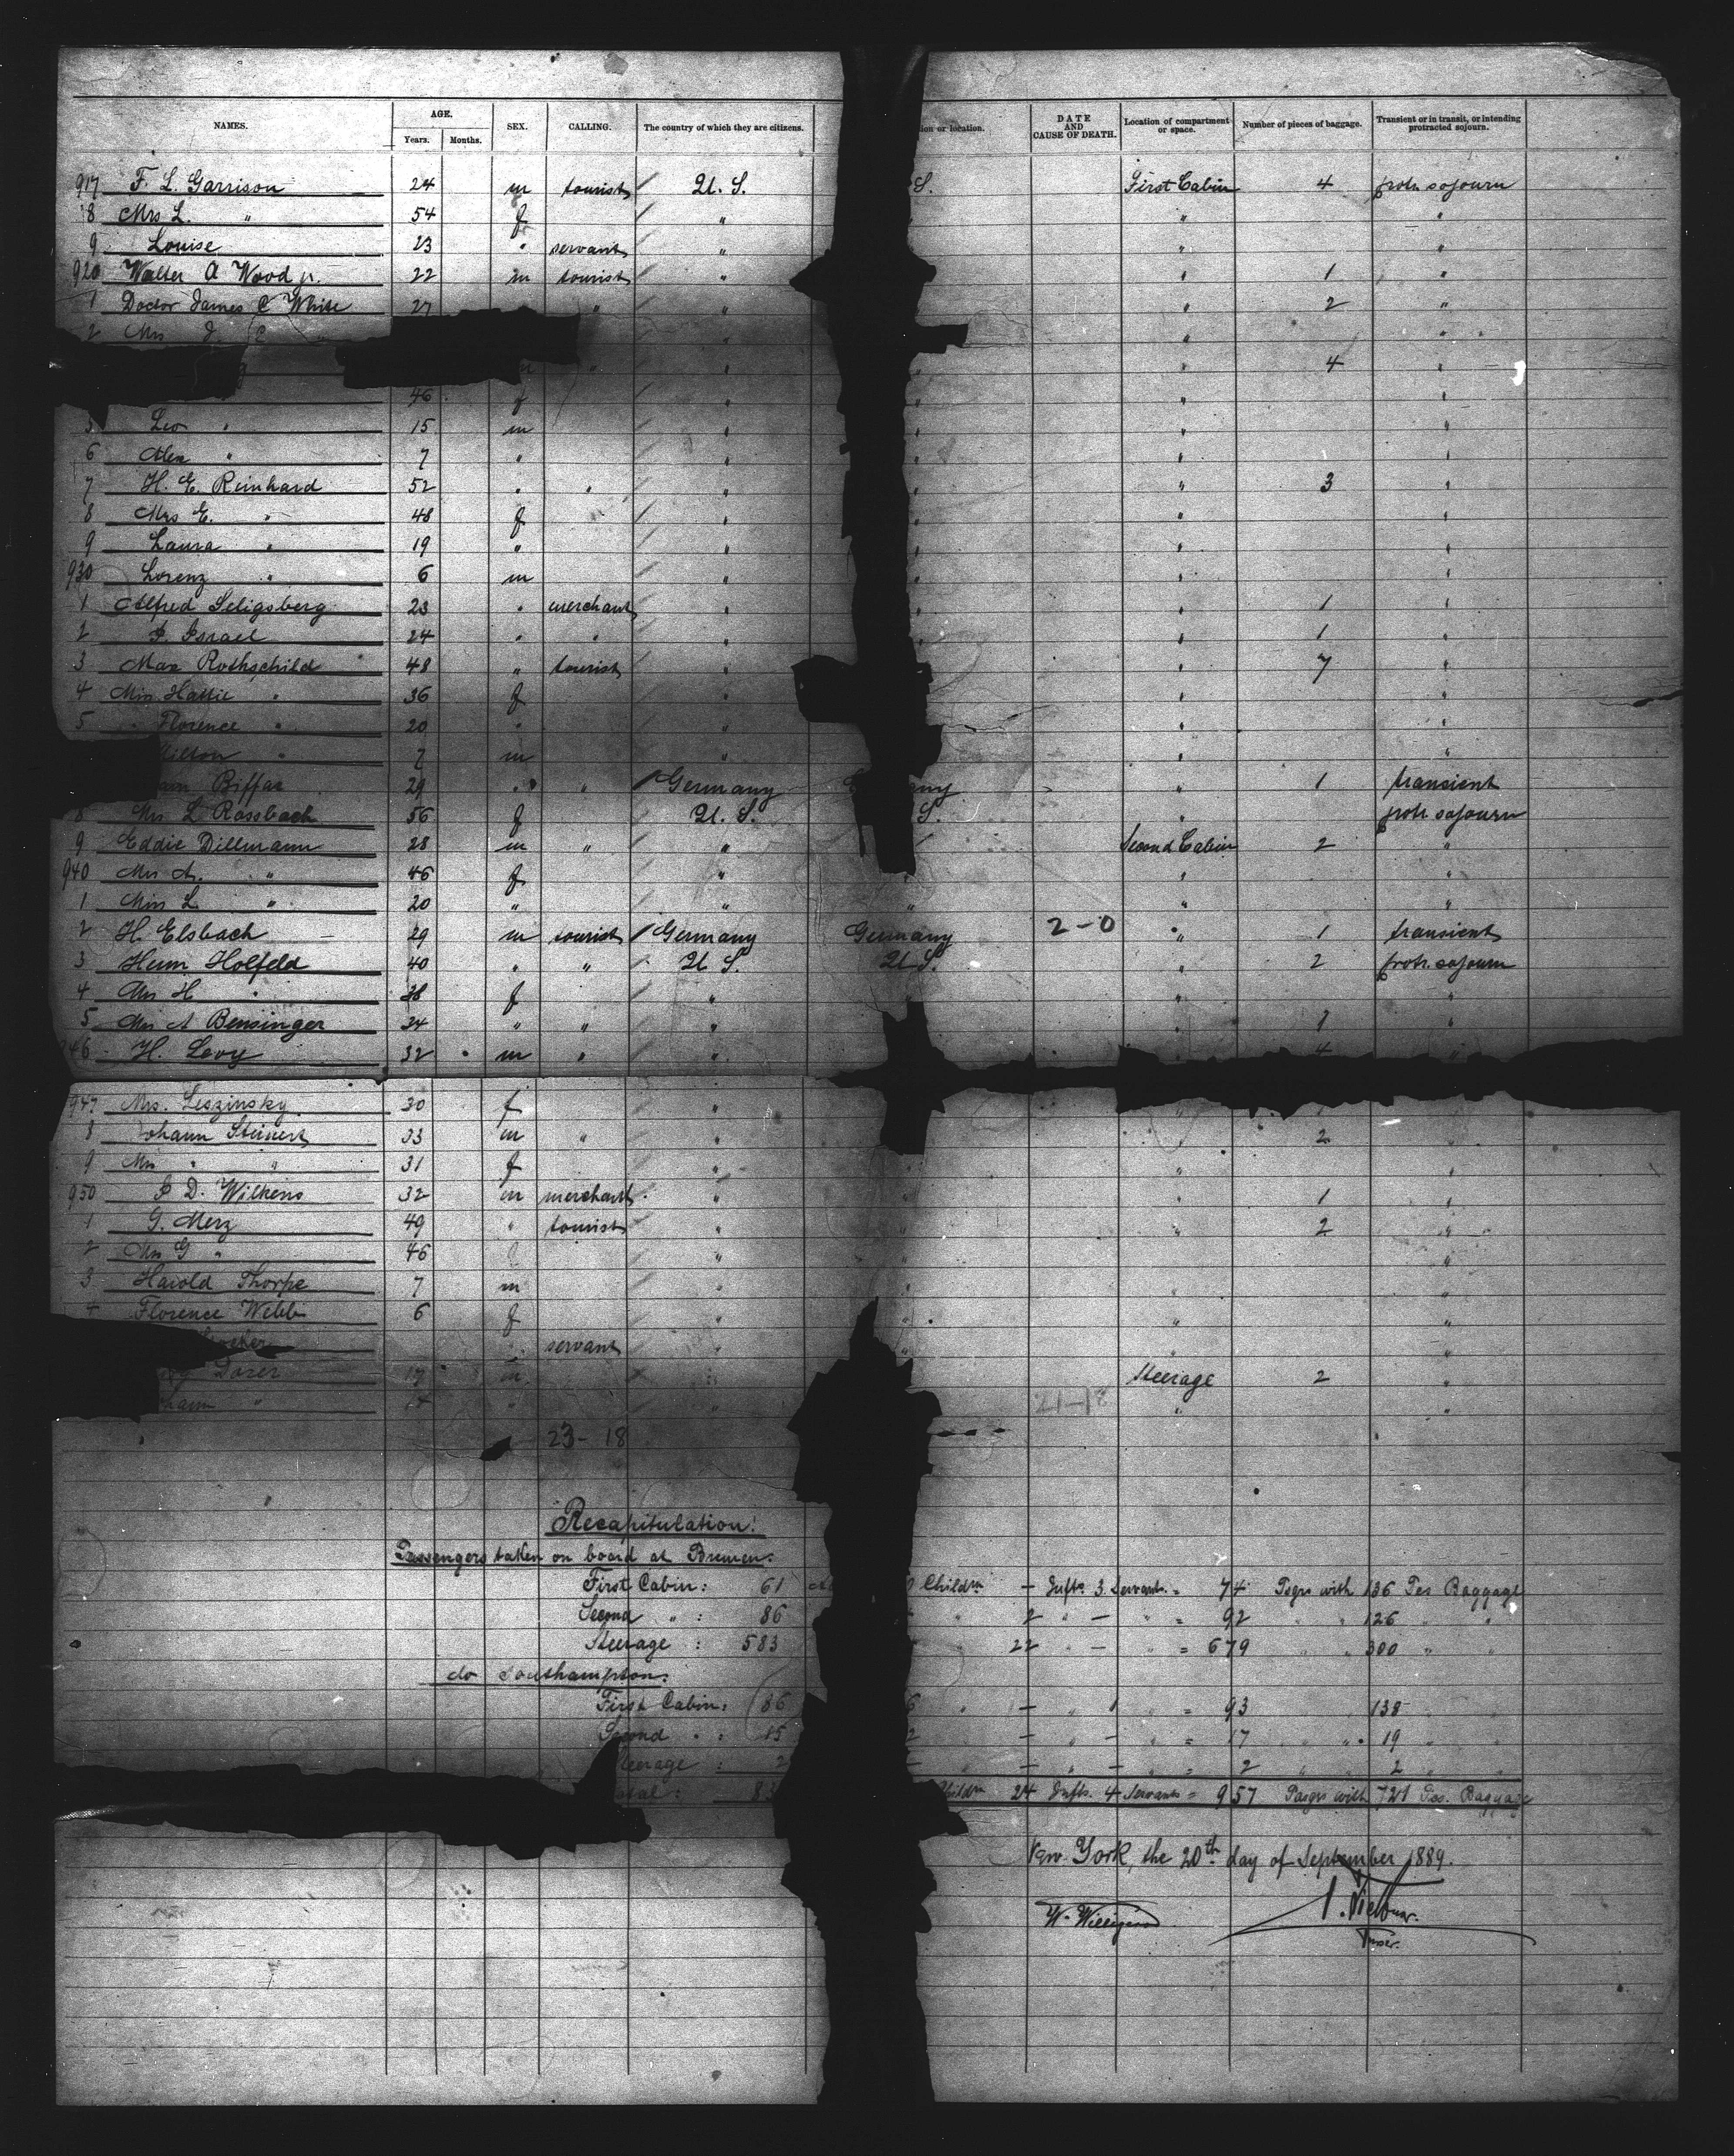 NAMES. AGE. Years. Months. SEX. CALLING. The country of which they are citizens. ion or location. DATE AND CAUSE OF DEATH. Location of compartment or space. Number of pieces of baggage. Transient or in transit, or intending protracted sojourn.
917 F. L. Garrison 24 m tourist U. S. S. First Cabin 4 protr. sojourn
8 Mrs L. " 54 f " " "
9 Louise 23 " servant " " "
920 Walter A Wood jr. 22 m tourist " " 1 "
1 Doctor James C White 27 " " " 2 "
2 Mrs J. C " " " "
m " " " 4 "
46 f " " "
5 Leo " 15 m " " "
6 Alex " 7 " " " "
7 H. E. Reinhard 52 " " " " 3 "
8 Mrs E. " 48 f " " "
9 Laura " 19 " " " "
930 Lorenz " 6 m " " "
1 Alfred Seligsberg 23 " merchant " " 1 "
2 Israel 24 " " " " 1 "
3 Max Rothschild 48 " tourist " " 7 "
4 Hattie " 36 f " " "
5 " Florence " 20 " " " "
ilton " 7 m " " "
am Biffar 29 " " Germany ny " 1 transient
8 Mrs L Rossbach 56 f U. S. S. " protr. sojourn
9 Eddie Dillmann 28 m " " Second Cabin 2 "
940 Mrs A. " 46 f " " " "
1 Miss L " 20 " " " " "
2 H. Elsbach 29 m tourist Germany Germany 2-0 " 1 transient
3 Herm Holfeld 40 " " U. S. U. S. " 2 protr. sojourn
4 Mrs H " 38 f " " "
5 Mrs A Bensinger 34 " " " " 1 "
946 H. Levy 32 m " " 4 "
947 Mrs. Leszinsky 30 f "
8 ohann Steinert 33 m " " " 2 "
9 Mrs " " 31 f " " "
950 D. Wilkens 32 m merchant " " 1 "
1 G. Merz 49 " tourist " " 2 "
2 Mrs G " 46 f " " "
3 Harold Thorpe 7 m " " "
4 Florence Webb 6 f " " "
servant " " "
Dorer 17 m " Steerage 2 "
hann " " " " "
21-18
23-18
Recapitulation:
Passengers taken on board at Bremen:
First Cabin: 61 Childn — Infts 3 servants = 74 Psgrs with 136 Pcs Baggage
Second " : 86 " 2 " — " = 92 " " 126 " "
Steerage : 583 " 22 " — " = 679 " " 300 " "
do Southampton:
First Cabin: 86 6 " — " 1 " = 93 138
Second " : 15 2 — " — " = 17 " " 19 " "
teerage : 2 — " — " = 2 " " 2 " "
otal: 83 Childn 24 Infts. 4 Servants = 957 Pasgrs with 721 Pcs. Baggage
New York, the 20th day of September 1889.
W. Willigerod
Purser.